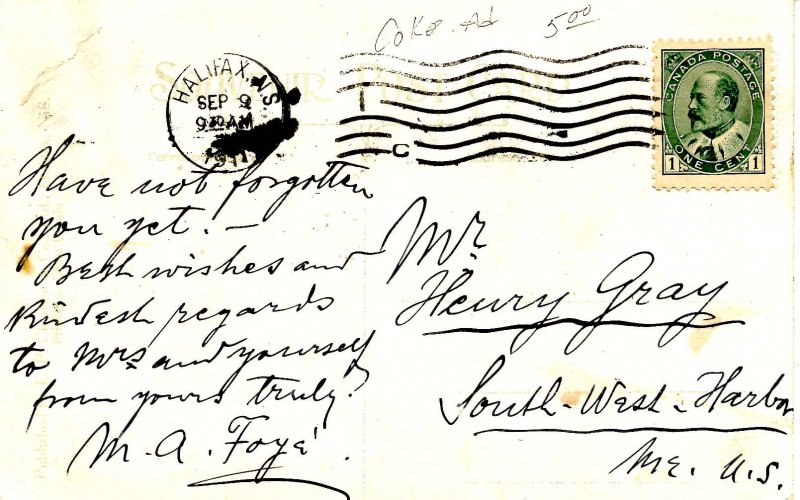 Coke Ad 5.00
SOUVENIR POST CARD
HALIFAX, N.S.
SEP 9
9 30 AM
1911
C
CANADA POSTAGE
1 ONE CENT 1
Have not forgotten
you yet. —
Best wishes and
Kindest regards
to Mrs and yourself
from yours truly.
M. A. Foyé.
Mr
Henry Gray
South-West-Harbor
Me. U.S.